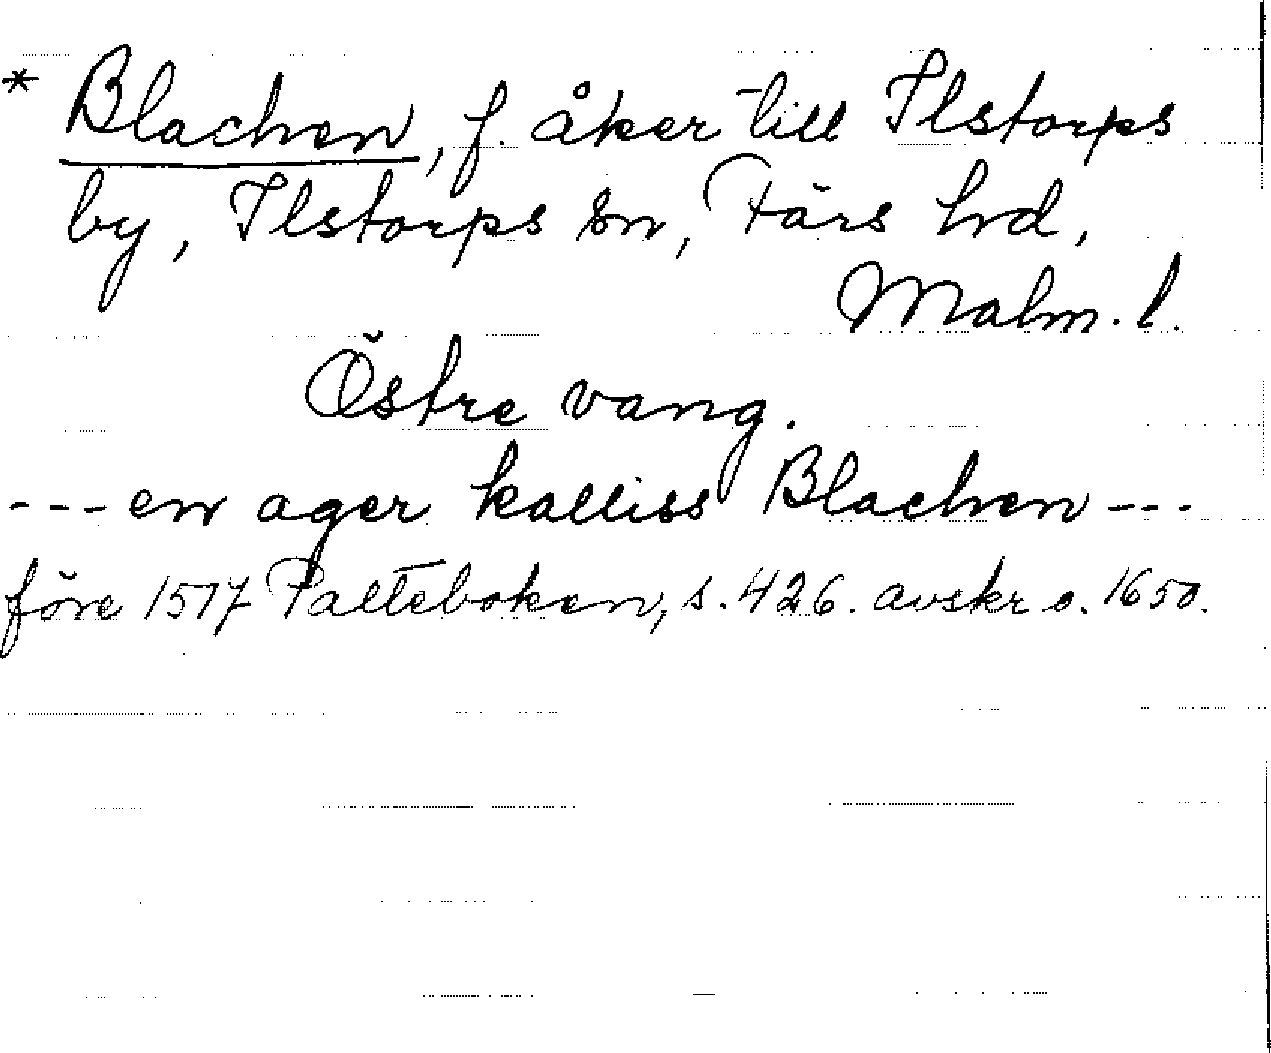 * Blachen, f. åker till Ilstorps
by, Ilstorps sn, Färs hd,
Malm. l.
Östre vang.
---en ager kalliss Blachen---
före 1517 Palteboken, s. 426. avskr o. 1650.